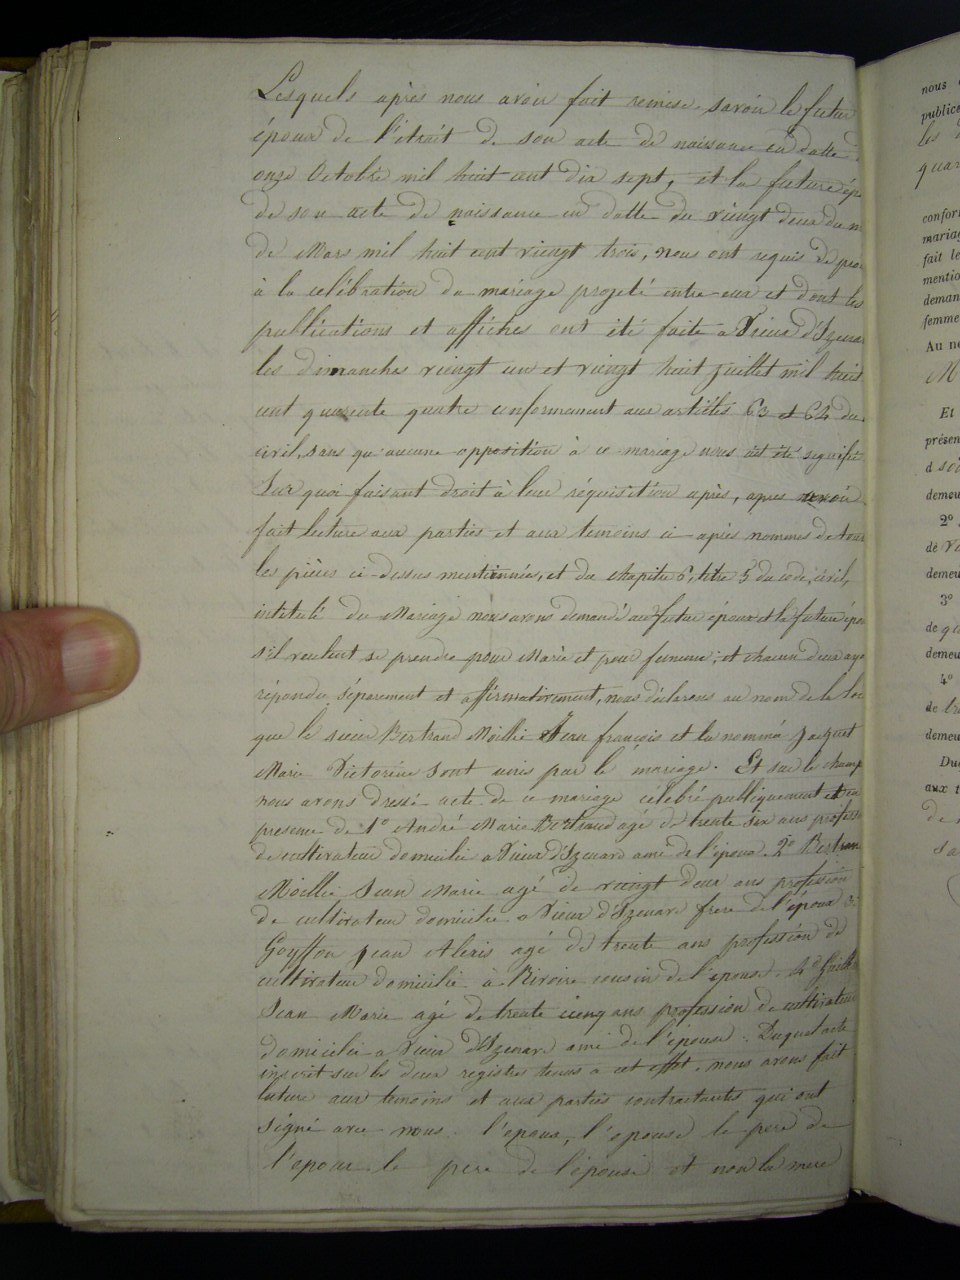 Lesquels après nous avoir fait remise, savoir le futur
époux de l'étrait de son acte de naissance en datte d
onze Octobre mil huit cent dix sept, et la future épo
de son acte de naissance en datte du viengt deux du m
de Mars mil huit cent viengt trois, nous ont requis de pro
à la celébration du mariage projeté entre eux et dont les
publications et affiches ont été faite a Vieux d'Izenav
les dimanches viengt un et viengt huit juillet mil huit
cent quarente quatre conformement aux articles 63 et 64 du
civil, sans qu'aucune opposition à ce mariage nous ait été signifié
Sur quoi faisant droit à leur réquisition après, apres avoir
fait lecture aux parties et aux temoins ci-après nommés de tout
les pièces ci-dessus mentionnées, et du chapitre 6, titre 5 du code, civil,
intitulé du Mariage nous avons demandé au futur époux et la future épou
s'il veulent se prendre pour Marie et pour femme; et chacun deux aya
répondu séparement et affirmativement, nous déclarons au nom de la loi
que le sieur Bertrand Moëllié Jean françois et la nommé Jacquet
Marie Victorine sont unis par le mariage. Et sur le champ
nous avons dressé acte de ce mariage célebré publiquement et en
presence de 1° André Marie Bertraud agé de trente six ans professi
de cultivateur domicilié a Vieux d'Izenave ami de l'époux. 2° Bertran
Moëllié Jean Marie agé de viengt deux ans profession
de cultivateur domicilié a Vieux d'Izenave frere de l'époux 3°
Goyffon Jean Alexis agé de trente ans profession de
cultivateur domicilié à cousin de l'epouse. 4°
Jean Marie agé de trente cienq ans profession de cultivateur
domicilié a Vieux d'Izenave ami de l'épouse. Duquel acte
inscrit sur les deux registres tenus a cet effet. nous avons fait
lecture aux temoins et aux parties contractantes qui ont
signé avec nous. l'epoux, l'epouse le pere de
l'epoux le pere de l'épouse et non la mere
nous
publica
les
quar
confor
mariag
fait le
mentio
deman
femme
Au no
M
Et
présen
d soi
demeu
2°
de
demeu
3°
de qu
demeu
4°
de tre
demeu
Du
aux t
de
sa